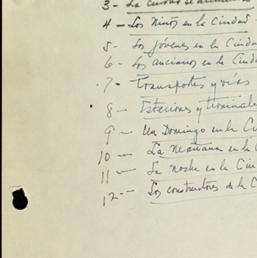 3 - La Ciudad se
4 - Los Niños en la Ciudad
5 - Los jóvenes en la Ciuda
6 - Los ancianos en la Ciuda
7 - Transportes y vías
8 - Estaciones y terminale
9 - Un Domingo en la Ci
10 - La Mañana en la C
11 - La noche en la Ciu
12 - Los constructores de la C